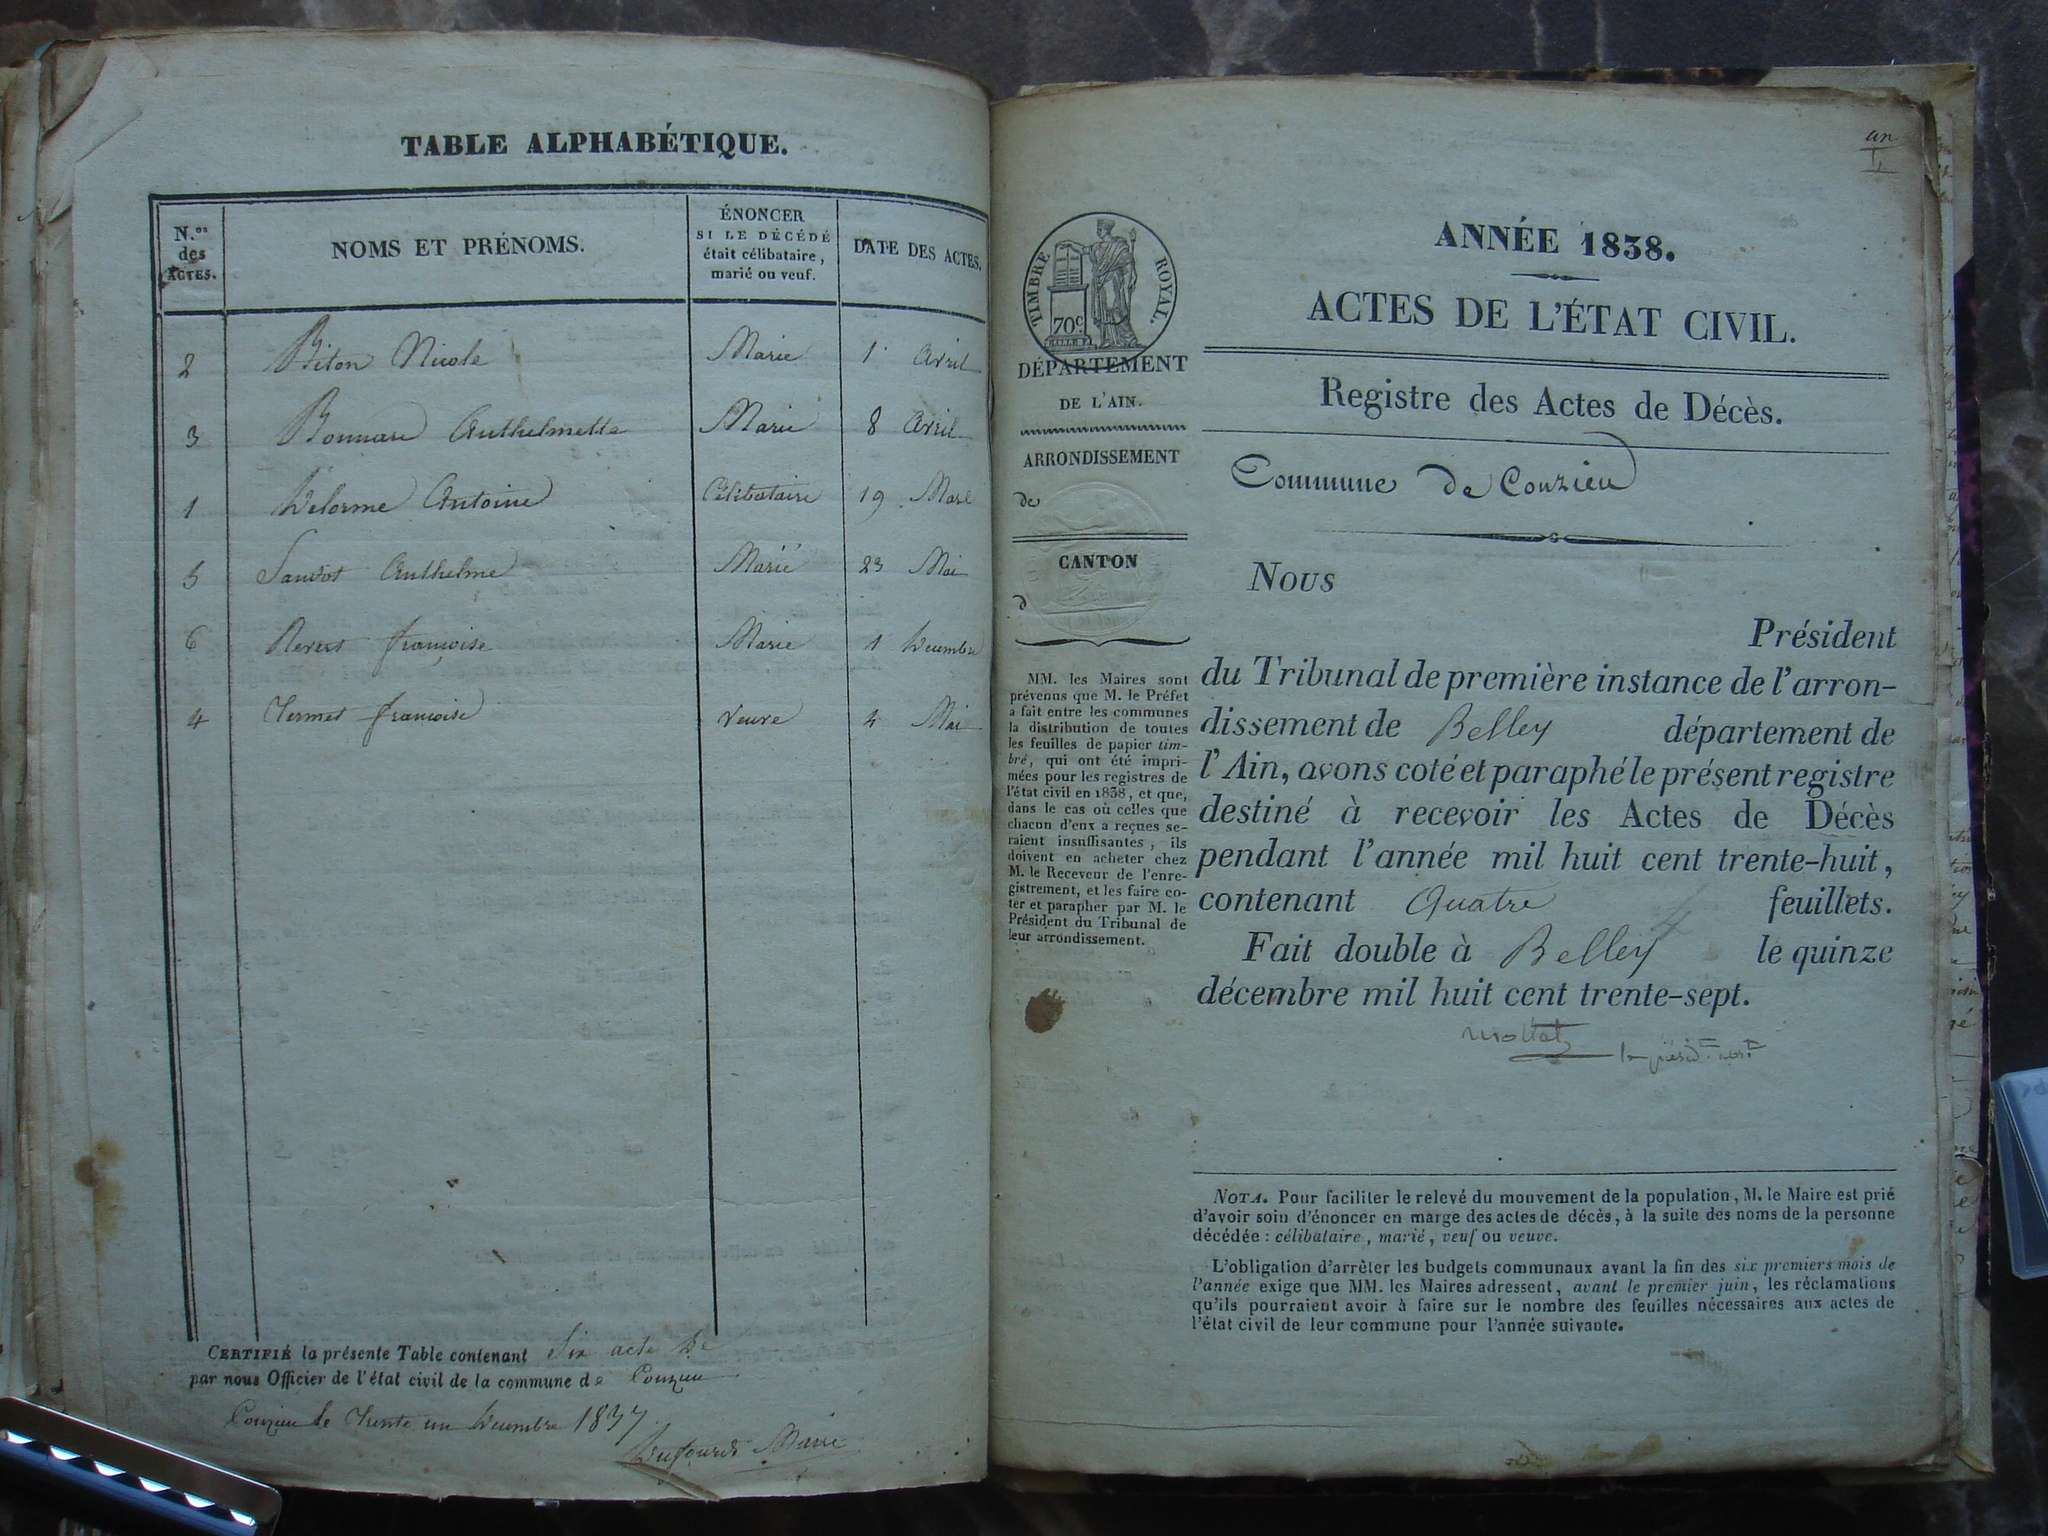 TABLE ALPHABÉTIQUE.
N.os des ACTES.
NOMS ET PRÉNOMS.
ÉNONCER
SI LE DÉCÉDÉ
était célibataire,
marié ou veuf.
DATE DES ACTES.
2 Biton Nicole Marie 1 Avril
3 Bonnare Anthelmette Marié 8 Avril
1 Delorme Antoine Célibataire 19 Mars
5 Anthelme Marié 23 Mai
6 françoise Marie 1 Decembre
4 Termet françoise Veuve 4 Mai
CERTIFIÉ la présente Table contenant Six acte De
par nous Officier de l'état civil de la commune de Conzieu
Conzieu le Trente un Decembre 1837
Dufourd Maire
un
1
TIMBRE ROYAL.
70c
DÉPARTEMENT
DE L'AIN.
ARRONDISSEMENT
de
CANTON
d
MM. les Maires sont
prévenus que M. le Préfet
a fait entre les communes
la distribution de toutes
les feuilles de papier tim-
bré, qui ont été impri-
mées pour les registres de
l'état civil en 1838, et que,
dans le cas où celles que
chacun d'eux a reçues se-
raient insuffisantes, ils
doivent en acheter chez
M. le Receveur de l'enre-
gistrement, et les faire co-
ter et parapher par M. le
Président du Tribunal de
leur arrondissement.
ANNÉE 1838.
ACTES DE L'ÉTAT CIVIL.
Registre des Actes de Décès.
Commune de Conzieu
NOUS
Président
du Tribunal de première instance de l'arron-
dissement de Belley département de
l'Ain, avons coté et paraphé le présent registre
destiné à recevoir les Actes de Décès
pendant l'année mil huit cent trente-huit,
contenant Quatre feuillets.
Fait double à Belley le quinze
décembre mil huit cent trente-sept.
NOTA. Pour faciliter le relevé du mouvement de la population, M. le Maire est prié
d'avoir soin d'énoncer en marge des actes de décès, à la suite des noms de la personne
décédée : célibataire, marié, veuf ou veuve.
L'obligation d'arrêter les budgets communaux avant la fin des six premiers mois de
l'année exige que MM. les Maires adressent, avant le premier juin, les réclamations
qu'ils pourraient avoir à faire sur le nombre des feuilles nécessaires aux actes de
l'état civil de leur commune pour l'année suivante.